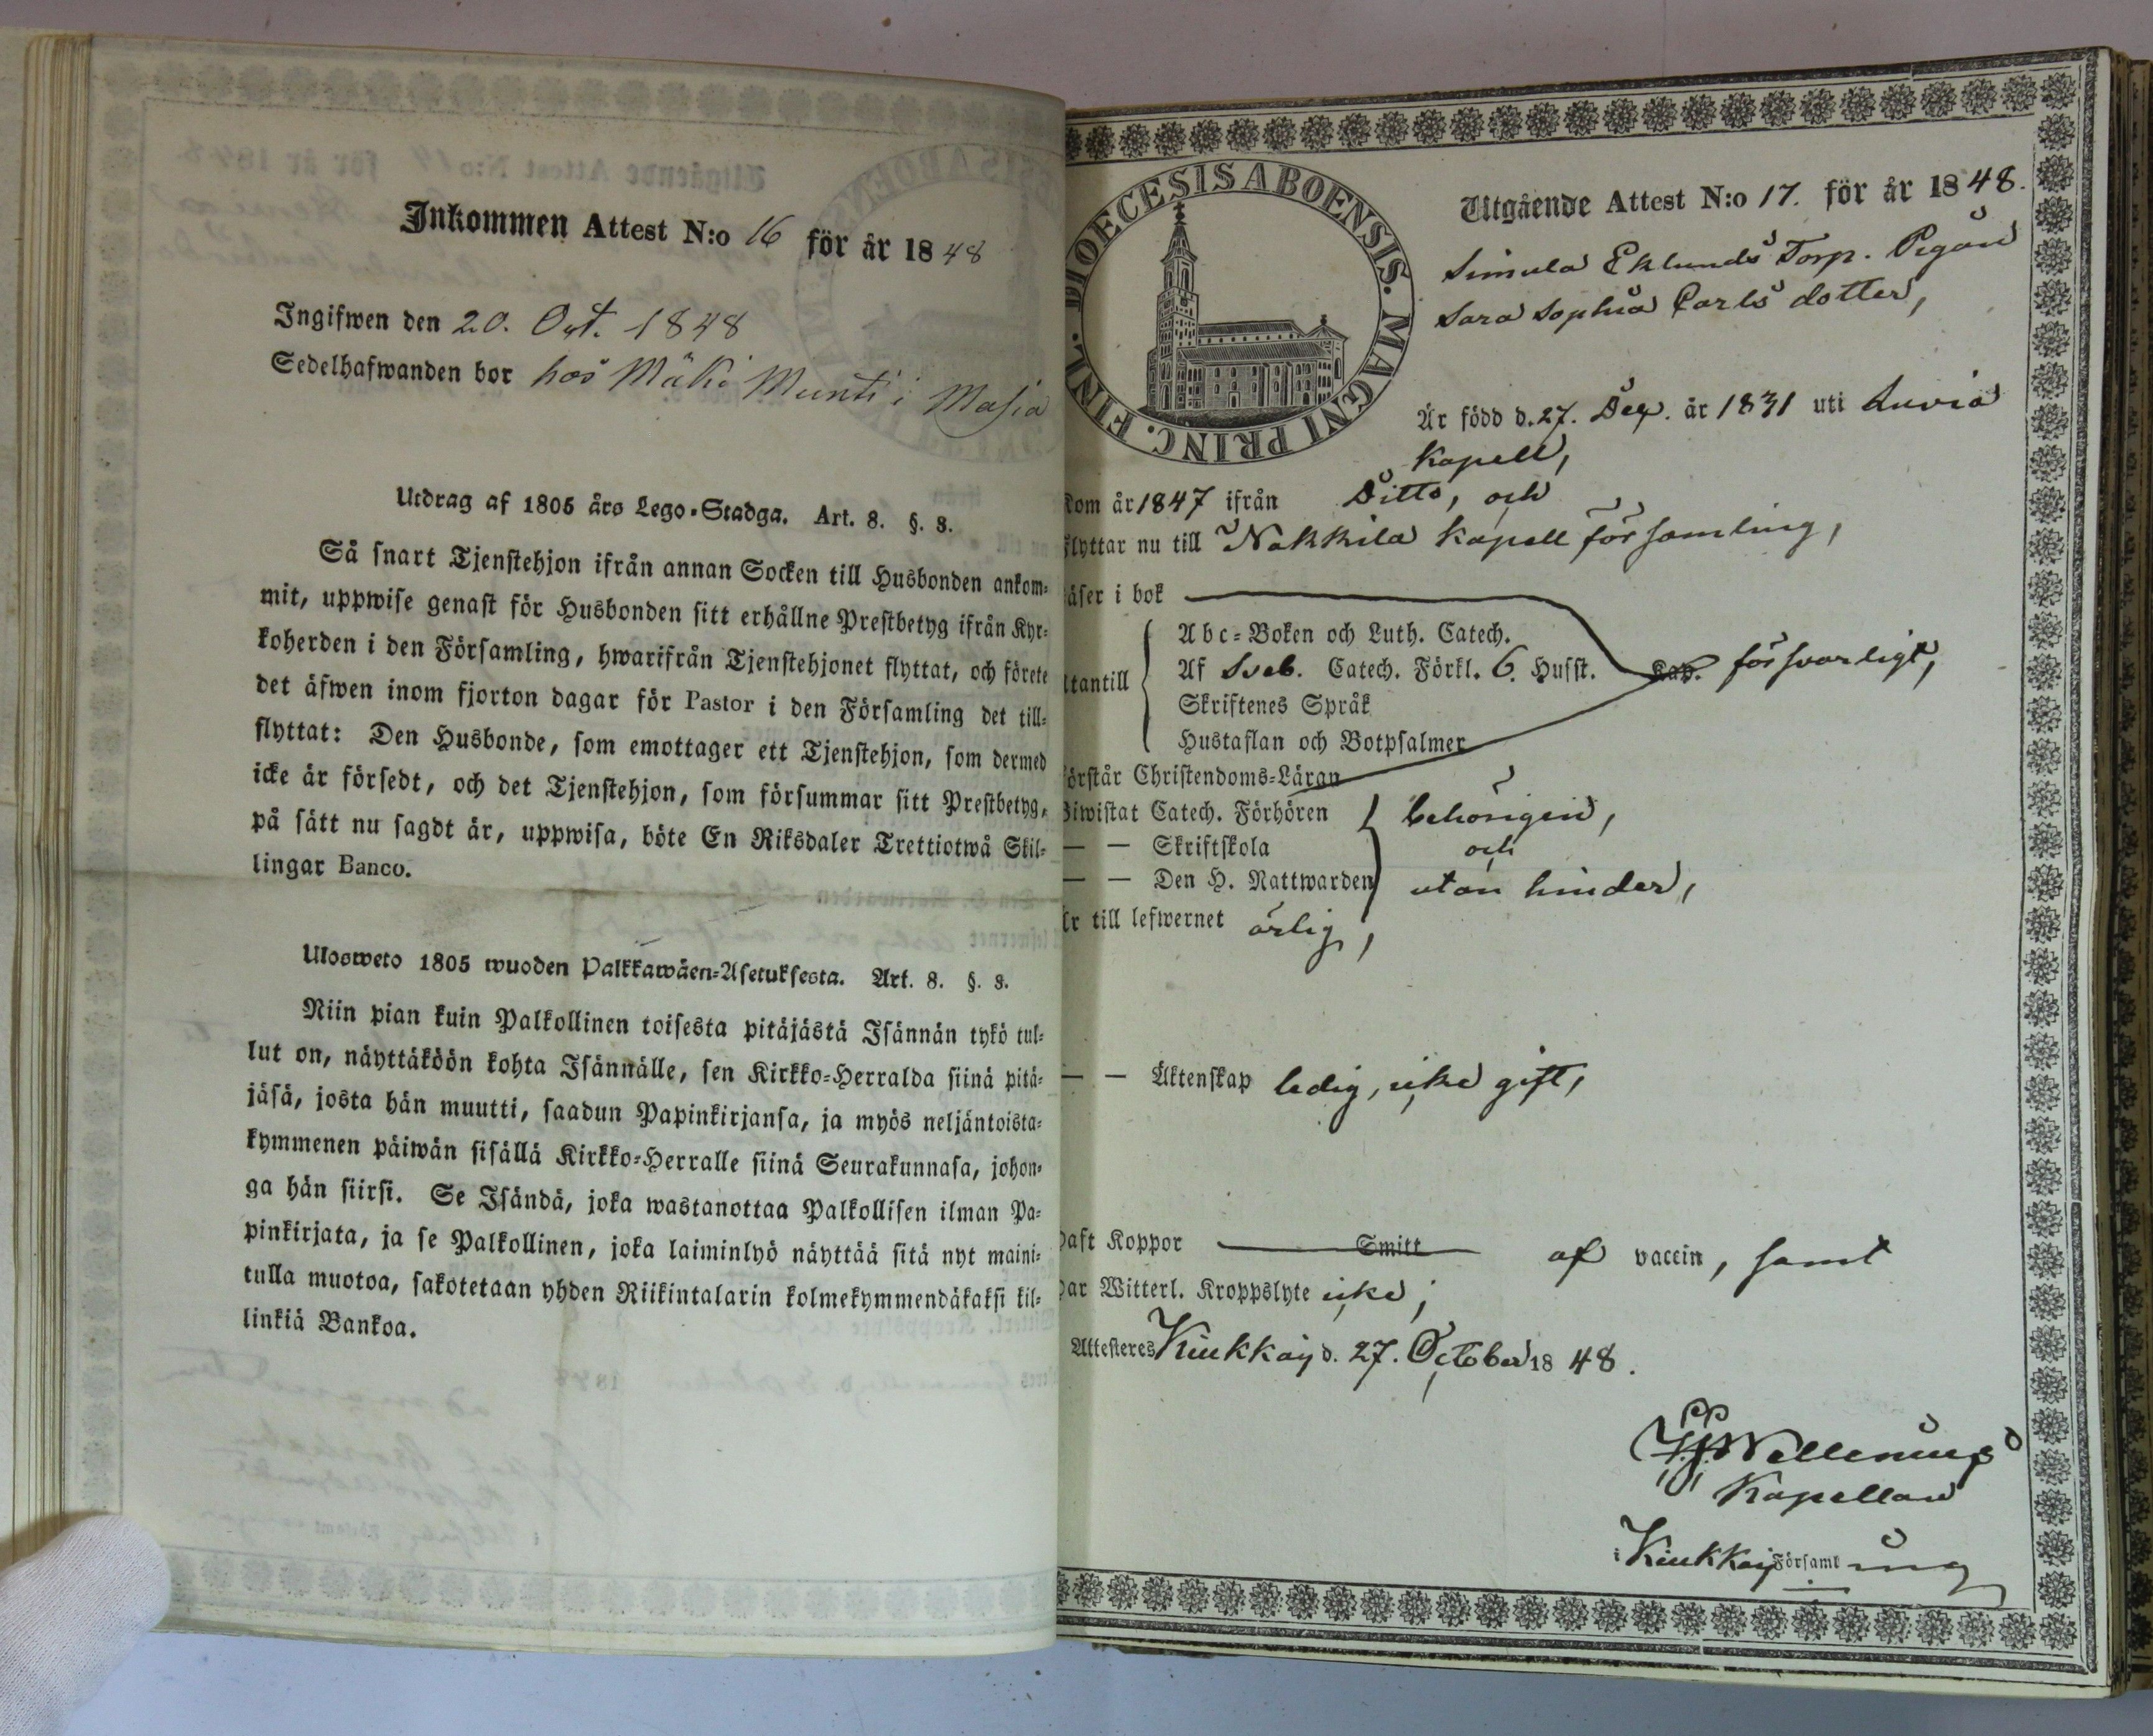 Inkommen Attest N:o 16 för år 1848
Ingifwen den 20. Oct. 1848
Sedelhafwanden bor hos Mäki Munti i Masia
Utdrag af 1805 års Lego-Stadga. Art. 8. §. 8.
Så snart Tjenstehjon ifrån annan Socken till Husbonden ankom-
mit, uppwise genast för Husbonden sitt erhållne Prestbetyg ifrån Kyr-
koherden i den Församling, hwarifrån Tjenstehjonet flyttat, och förete
det äfwen inom fjorton dagar för Pastor i den Församling det till-
flyttat: Den Husbonde, som emottager ett Tjenstehjon, som dermed
icke är försedt, och det Tjenstehjon, som försummar sitt Prestbetyg,
på sätt nu sagdt är, uppwisa, böte En Riksdaler Trettiotwå Skil-
lingar Banco.
Ulosweto 1805 wuoden Palkkawäen-Asetuksesta. Art. 8. §. 8.
Niin pian kuin Palkollinen toisesta pitäjästä Isännän tykö tul-
lut on, näyttäköön kohta Isännälle, sen Kirkko-Herralda siinä pitä-
jäsä, josta hän muutti, saadun Papinkirjansa, ja myös neljäntoista-
kymmenen päiwän sisällä Kirkko-Herralle siinä Seurakunnasa, johon-
ga hän siirsi. Se Isändä, joka wastanottaa Palkollisen ilman Pa-
pinkirjata, ja se Palkollinen, joka laiminlyö näyttää sitä nyt maini-
tulla muotoa, sakotetaan yhden Riikintalarin kolmekymmendäkaksi kil-
linkiä Bankoa.
DIOECESIS ABOENSIS. MAGNI PRINC. FINL.
Utgående Attest N:o 17. för år 1848.
Simula Eklunds Torp. Pigan
Sara Sophia Carls dotter,
Är född d. 27. Dec. år 1831 uti Luvia
Kapell,
Kom år 1847 ifrån Ditto, och
flyttar nu till Nakkila Kapell församling,
Läser i bok
Abc-Boken och Luth. Catech.
utantill Af Sveb. Catech. Förkl. 6. Husst. Kap. försvarligt,
Skriftenes Språk
Hustaflan och Botpsalmer
Förstår Christendoms-Läran
Biwistat Catech. Förhören behörigen,
— — Skriftskola och
— — Den H. Nattwarden utan hinder,
Är till lefwernet ärlig,
— — Äktenskap ledig, icke gift,
Haft Koppor Smitt af vaccin, samt
Har Witterl. Kroppslyte icke;
Attesteres Kiukkais d. 27. October 1848.
Wellenius
Kapellan
i Kiukkais Församling